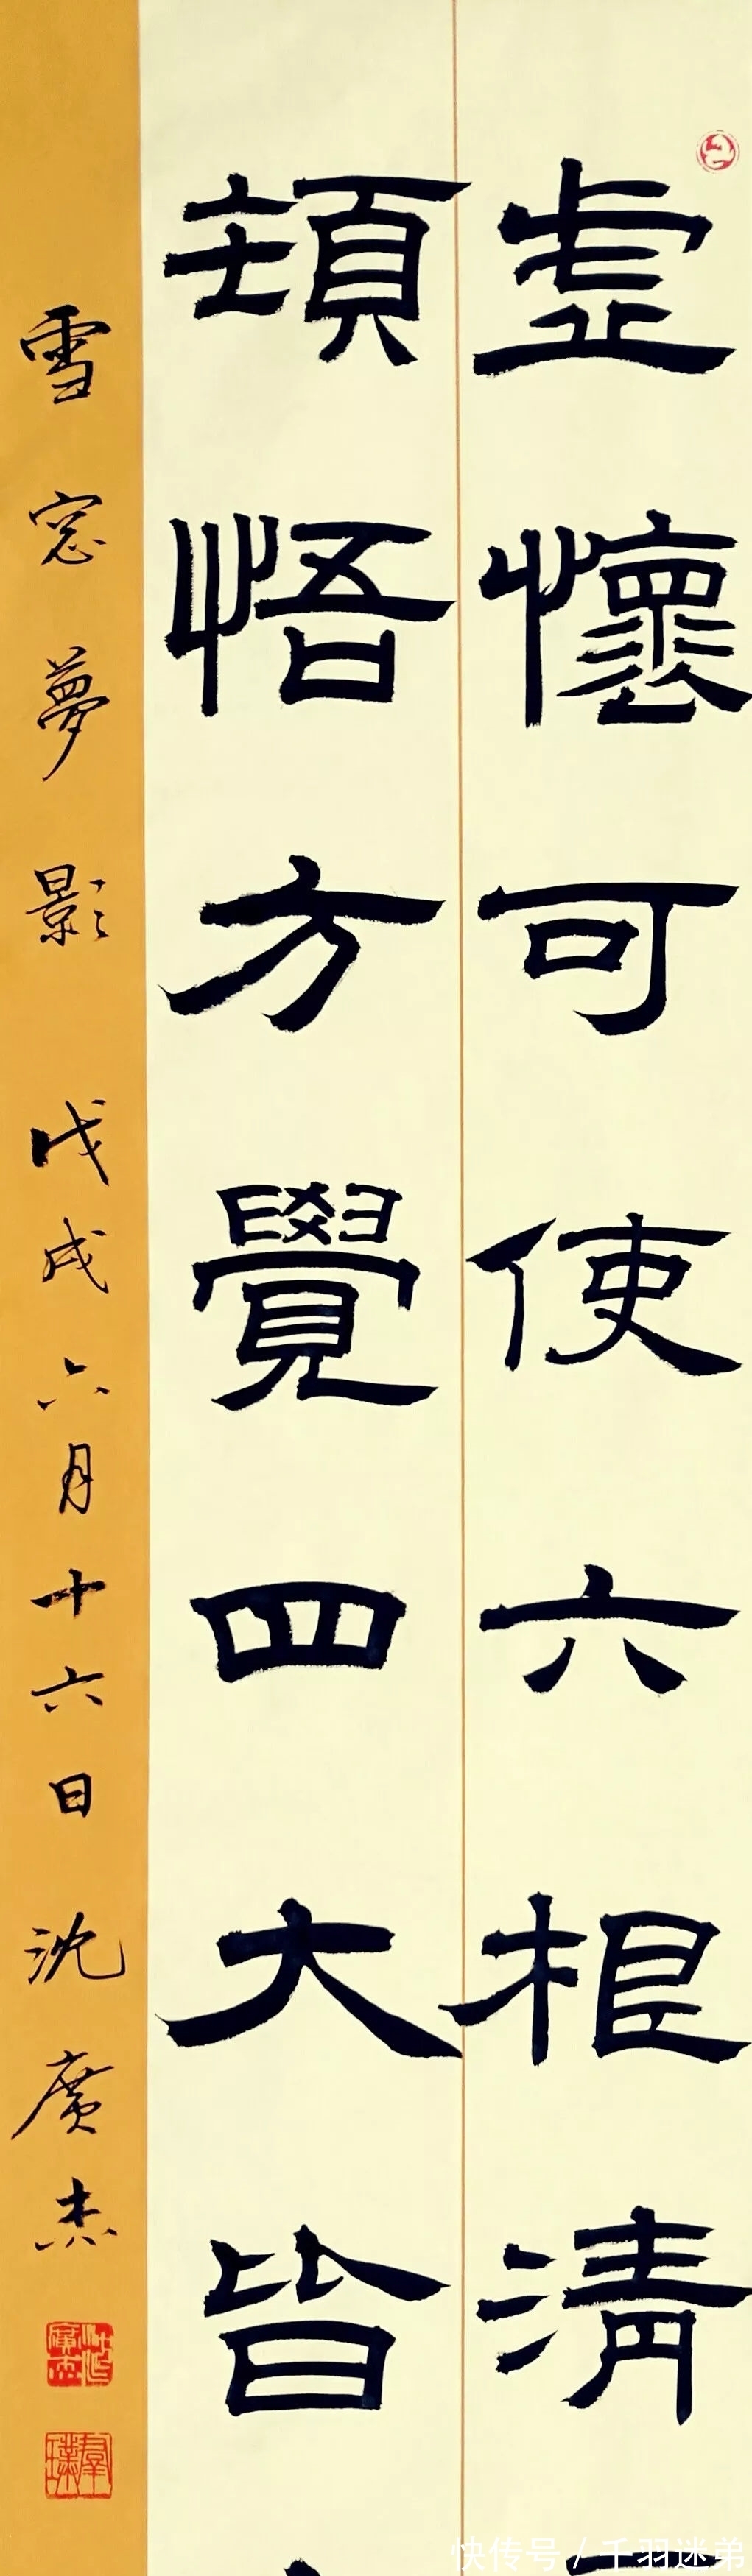 虛懷可使六根清
頓悟方覺四大皆
雪窓夢影 戊戌六月十六日 沈廣杰
快传号 / 千羽迷弟